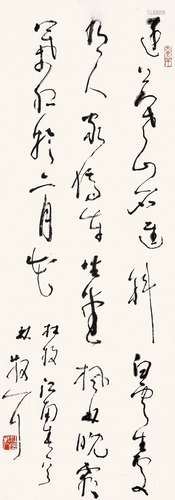 遠上寒山石逕斜白雲生處
有人家停車坐愛楓林晚霜
葉紅於二月花
杜牧江南春
散耳